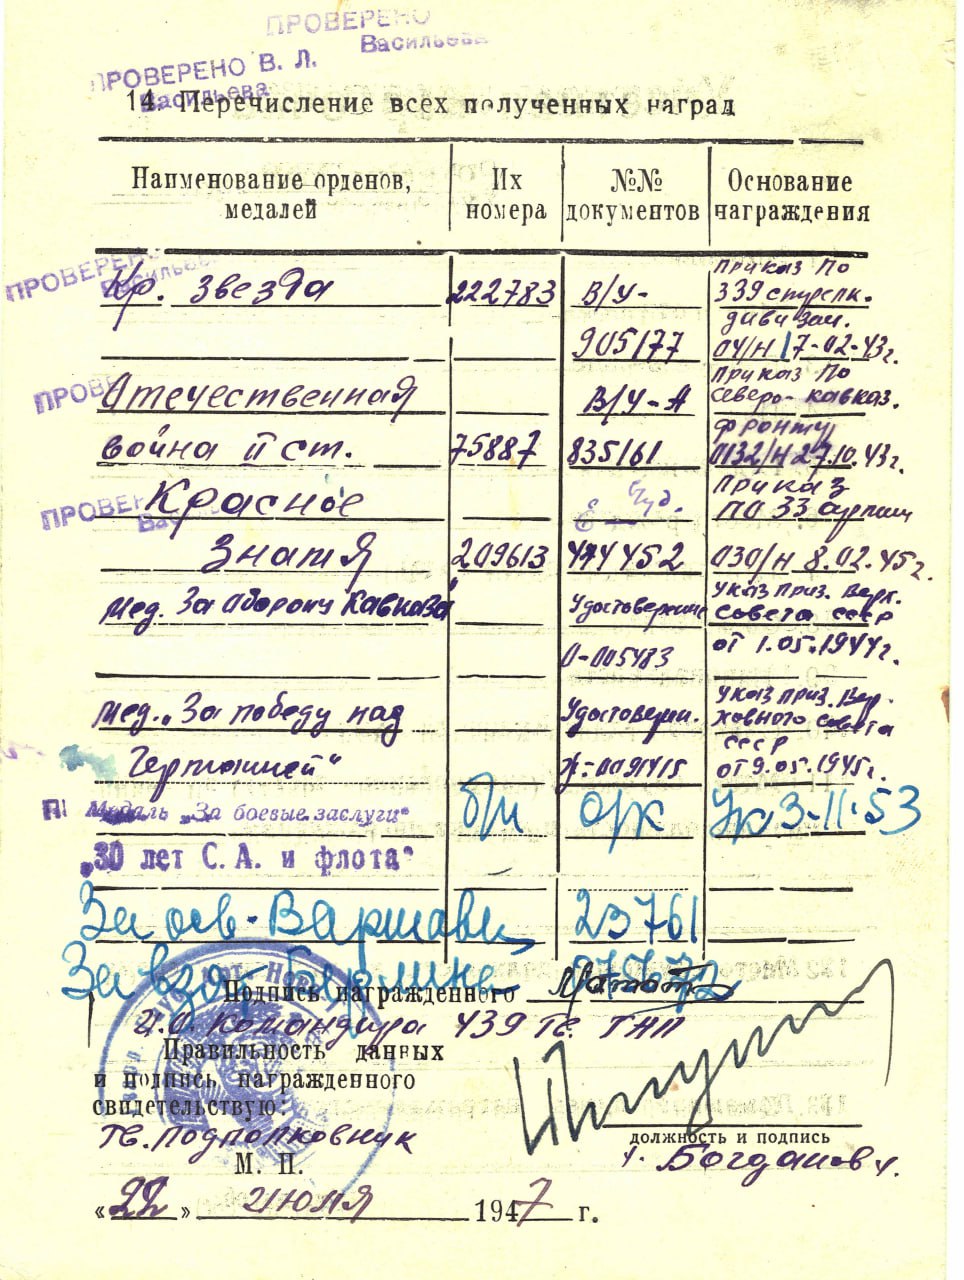 ПРОВЕРЕНО
Васильева
ПРОВЕРЕНО В. Л.
Васильева
14. Перечисление всех полученных наград
Наименование орденов, медалей
Их номера
№№ документов
Основание награждения
ПРОВЕРЕНО
Васильева
Кр. Звезда 222783 В/У- Приказ по
339 стрелк.
дивизии.
905177 04/Н 17-02-43г.
ПРОВЕ
Отечественная В/У-А Приказ по
Северо-кавказ.
фронту
война II ст. 75887 835161 0132/Н 27.10.43г.
ПРОВЕР
Ва
Красное Приказ
по 33 армии
Знамя 209613 474452 030/Н 8.02.45г.
Мед. За оборону Кавказа" Удостоверение Указ През. Верх.
Совета СССР
0-005483 от 1.05.1944г.
Мед. „За победу над Удостоверен. Указ През. Вер-
ховного Совета
СССР
Германией" 0091415 от 9.05.1945г.
Медаль „За боевые заслуги" б/н о/к Ук 3-11-53
„30 лет С. А. и флота"
За осв. Варшавы 23761
За взят. Берлина
Подпись награжденного
И.О. Командира 439 ГАП
Правильность данных
и подпись награжденного
свидетельствую:
Гв. Подполковник
должность и подпись
М. П.
/. Богданов /.
«22» июля 1947 г.